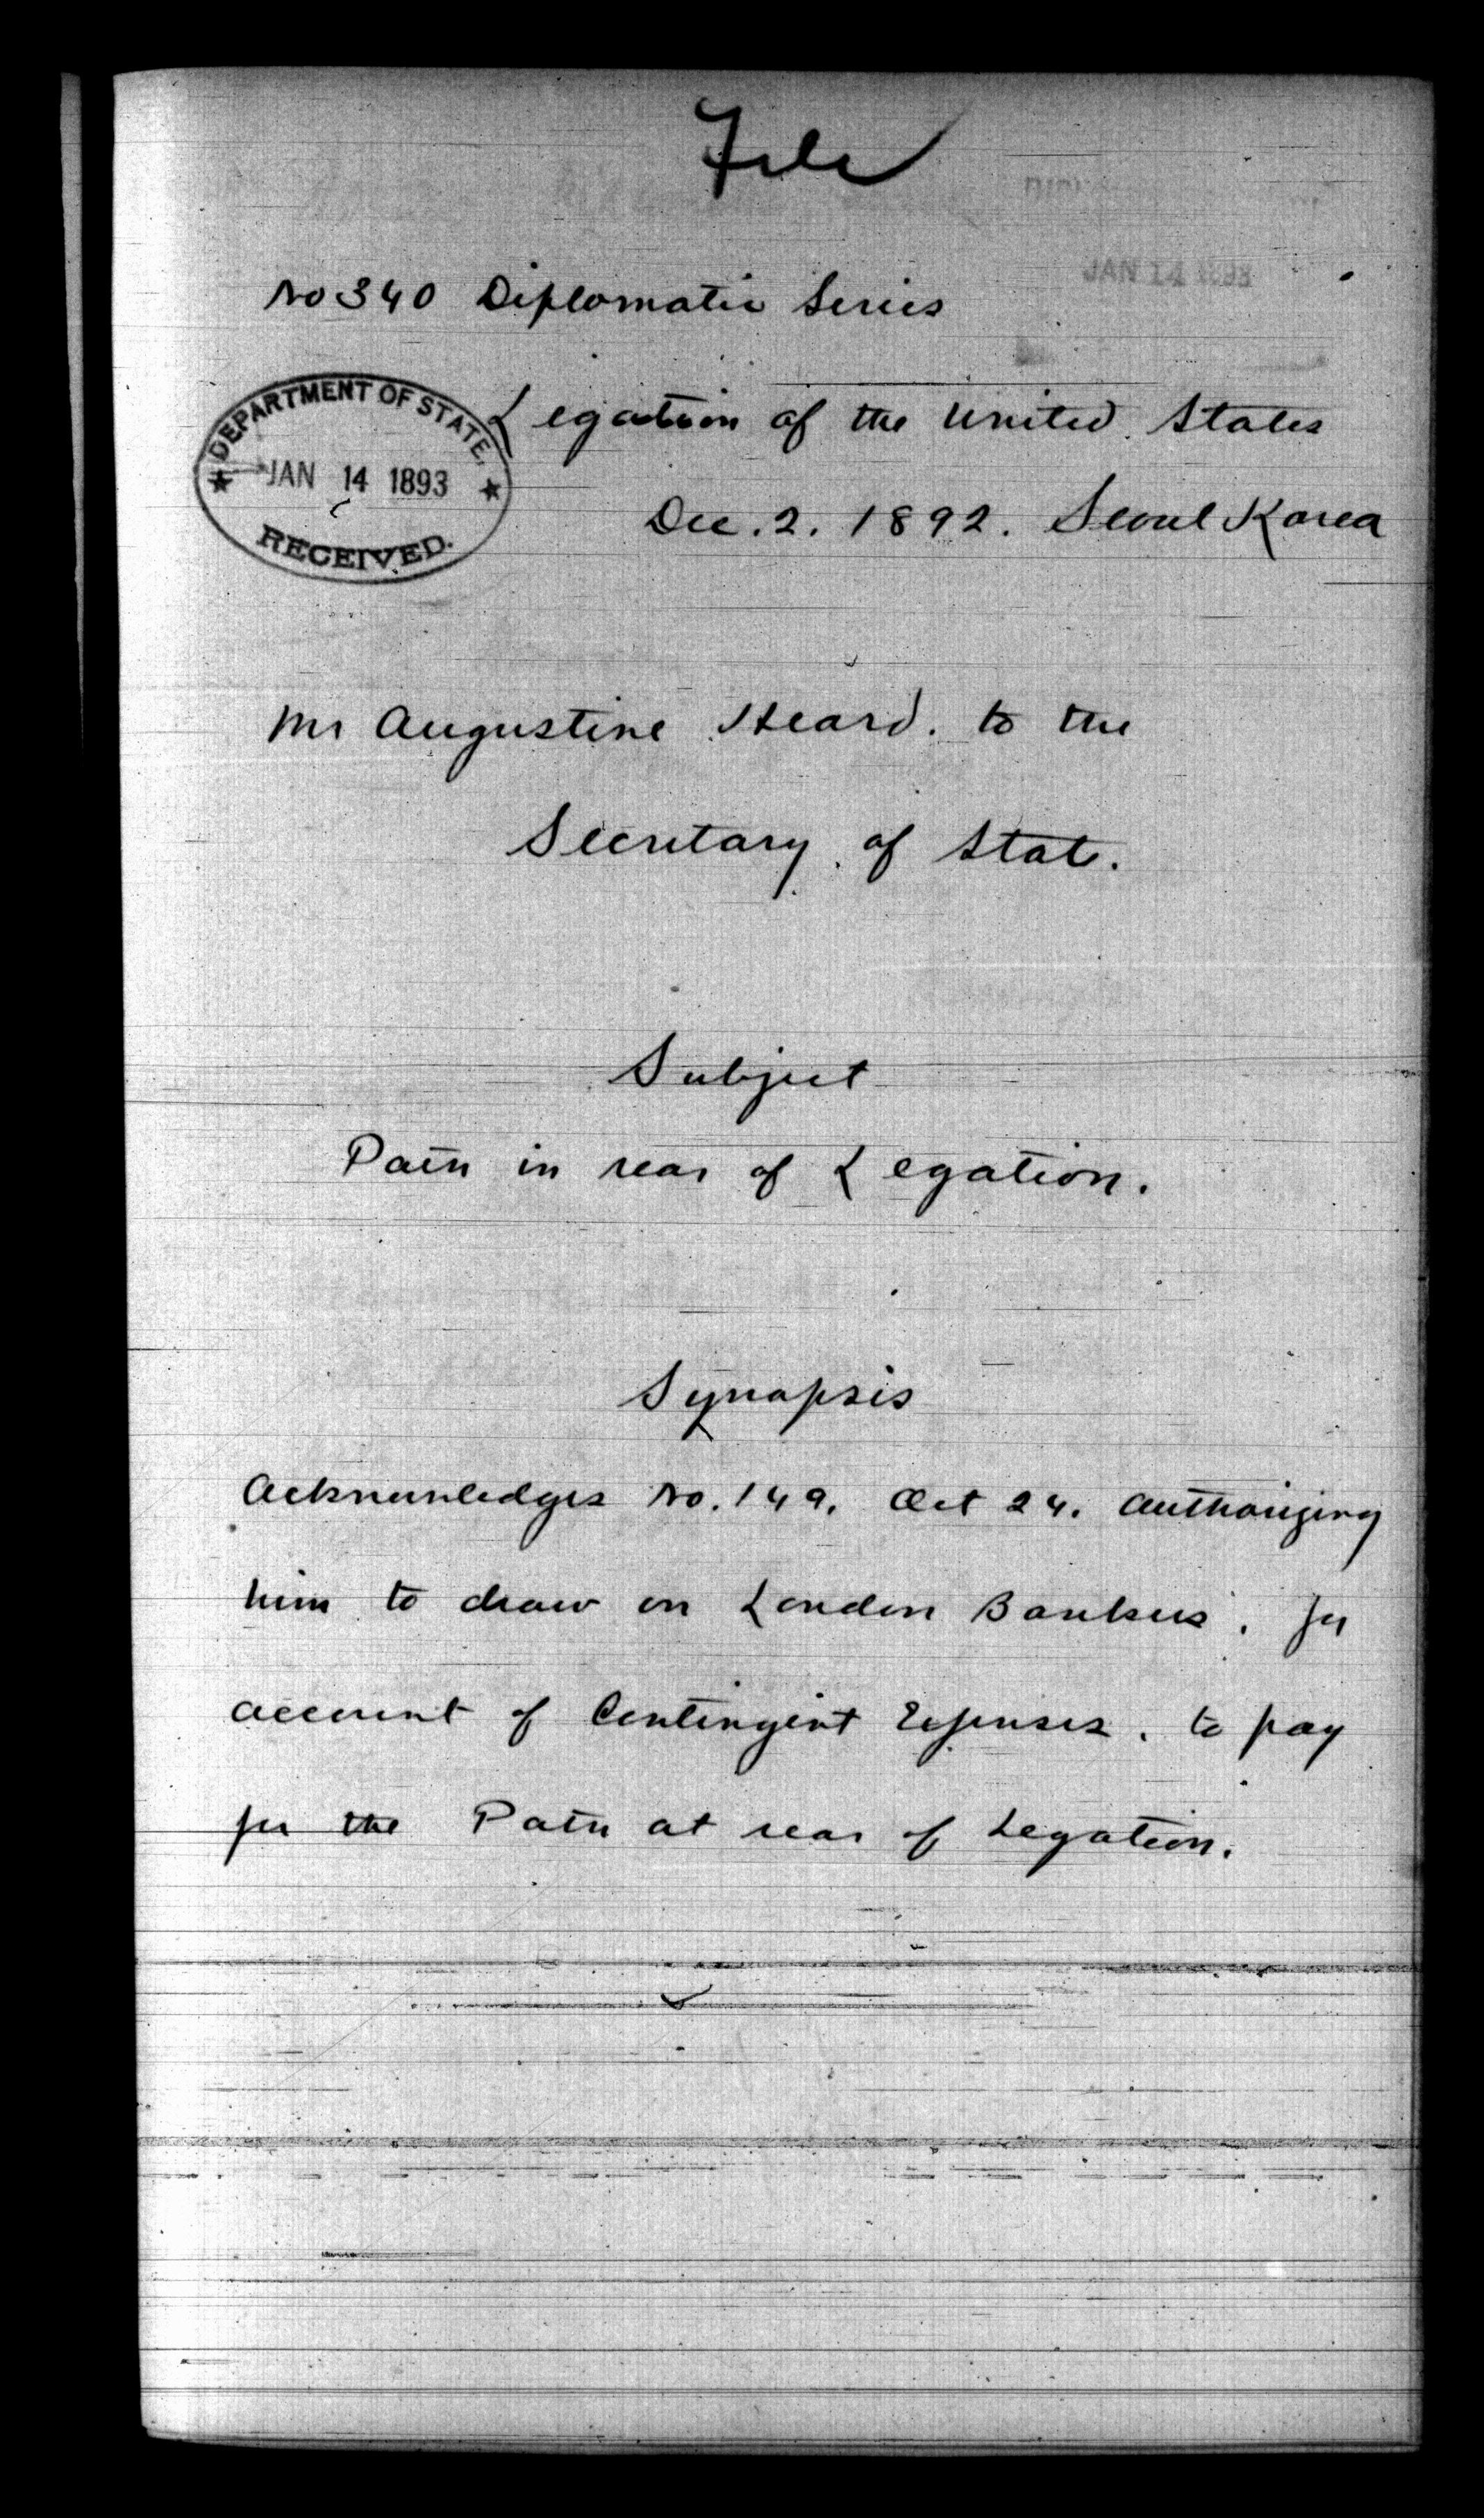 File
JAN 14 1893
No 340 Diplomatic Series
DEPARTMENT OF STATE,
JAN 14 1893
RECEIVED.
Legation of the United States
Dec. 2. 1892. Seoul Korea
Mr Augustine Heard. to the
Secretary of State.
Subject
Path in rear of Legation.
Synopsis
Acknowledges No. 149. Oct 24. authorizing
him to draw on London Bankers. for
account of Contingent Expenses. to pay
for the Path at rear of Legation.